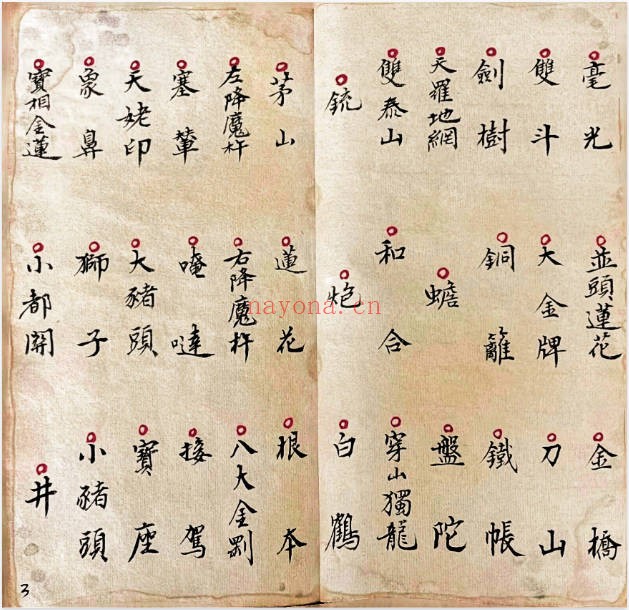 毫光
並頭蓮花
金橋
雙斗
大金牌
刀山
劍樹
銅籠
鐵帳
天羅地網
蟾
盤陀
雙泰山
和合
穿山獨龍
銃
炮
白鶴
茅山
蓮花
根本
左降魔杵
右降魔杵
八大金剛
塞輦
唵噠
接駕
天姥印
大豬頭
寶座
象鼻
獅子
小豬頭
寶相金蓮
小都開
井
3
nayona.cn